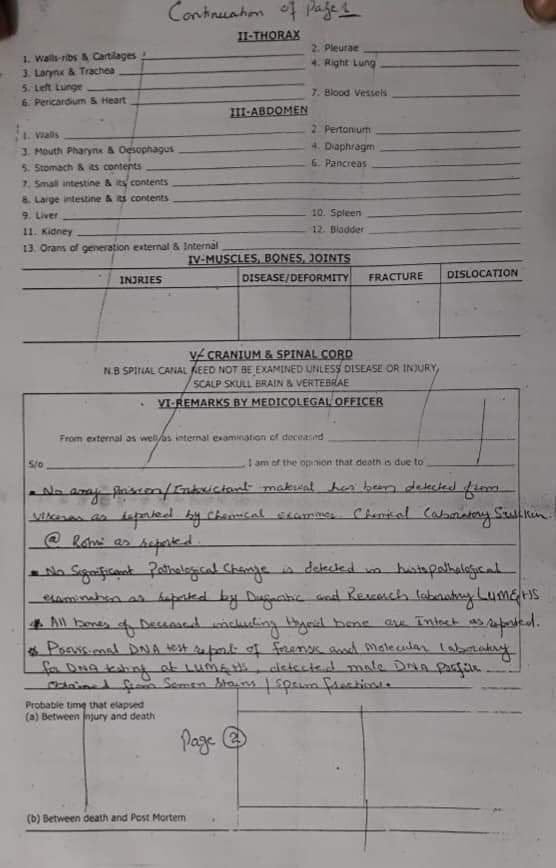 Continuation of Page 1
II-THORAX
1. Walls-ribs & Cartilages
2. Pleurae
3. Larynx & Trachea
4. Right Lung
5. Left Lunge
6. Pericardium & Heart
7. Blood Vessels
III-ABDOMEN
1. Walls
2. Pertonium
3. Mouth Pharynx & Oesophagus
4. Diaphragm
5. Stomach & its contents
6. Pancreas
7. Small intestine & its contents
8. Large intestine & its contents
9. Liver
10. Spleen
11. Kidney
12. Bladder
13. Orans of generation external & Internal
IV-MUSCLES, BONES, JOINTS
INJRIES DISEASE/DEFORMITY FRACTURE DISLOCATION
V- CRANIUM & SPINAL CORD
N.B SPINAL CANAL NEED NOT BE EXAMINED UNLESS DISEASE OR INJURY,
SCALP SKULL BRAIN & VERTEBRAE
VI-REMARKS BY MEDICOLEGAL OFFICER
From external as well as internal examination of deceased
S/o , I am of the opinion that death is due to
No any Poison/Intoxictant material has been detected from
visceras as reported by Chemical examiner Chemical Laboratory Sukkur
@ Rohri as reported.
No Significant Pathological Change is detected in histopathological
examination as reported by Diagnostic and Research laboratory LUM&HS
All bones of Deceased including Hyoid bone are Intact as reported.
Provisional DNA test report of forensic and Molecular laboratory
for DNA testing at LUM&HS, detected male DNA profile
obtained from Semen Stains / Sperm fractions.
Probable time that elapsed
(a) Between injury and death
Page 2
(b) Between death and Post Mortem